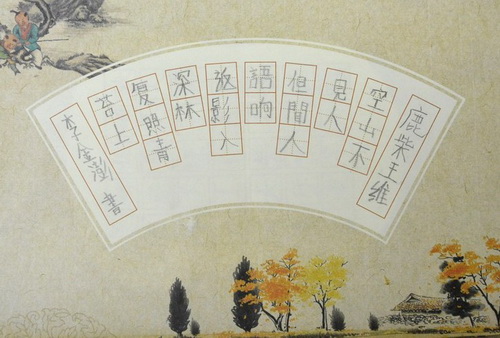 鹿柴王维
空山不
見人
但聞人
語响
返影入
深林
复照青
苔上
李金澎書